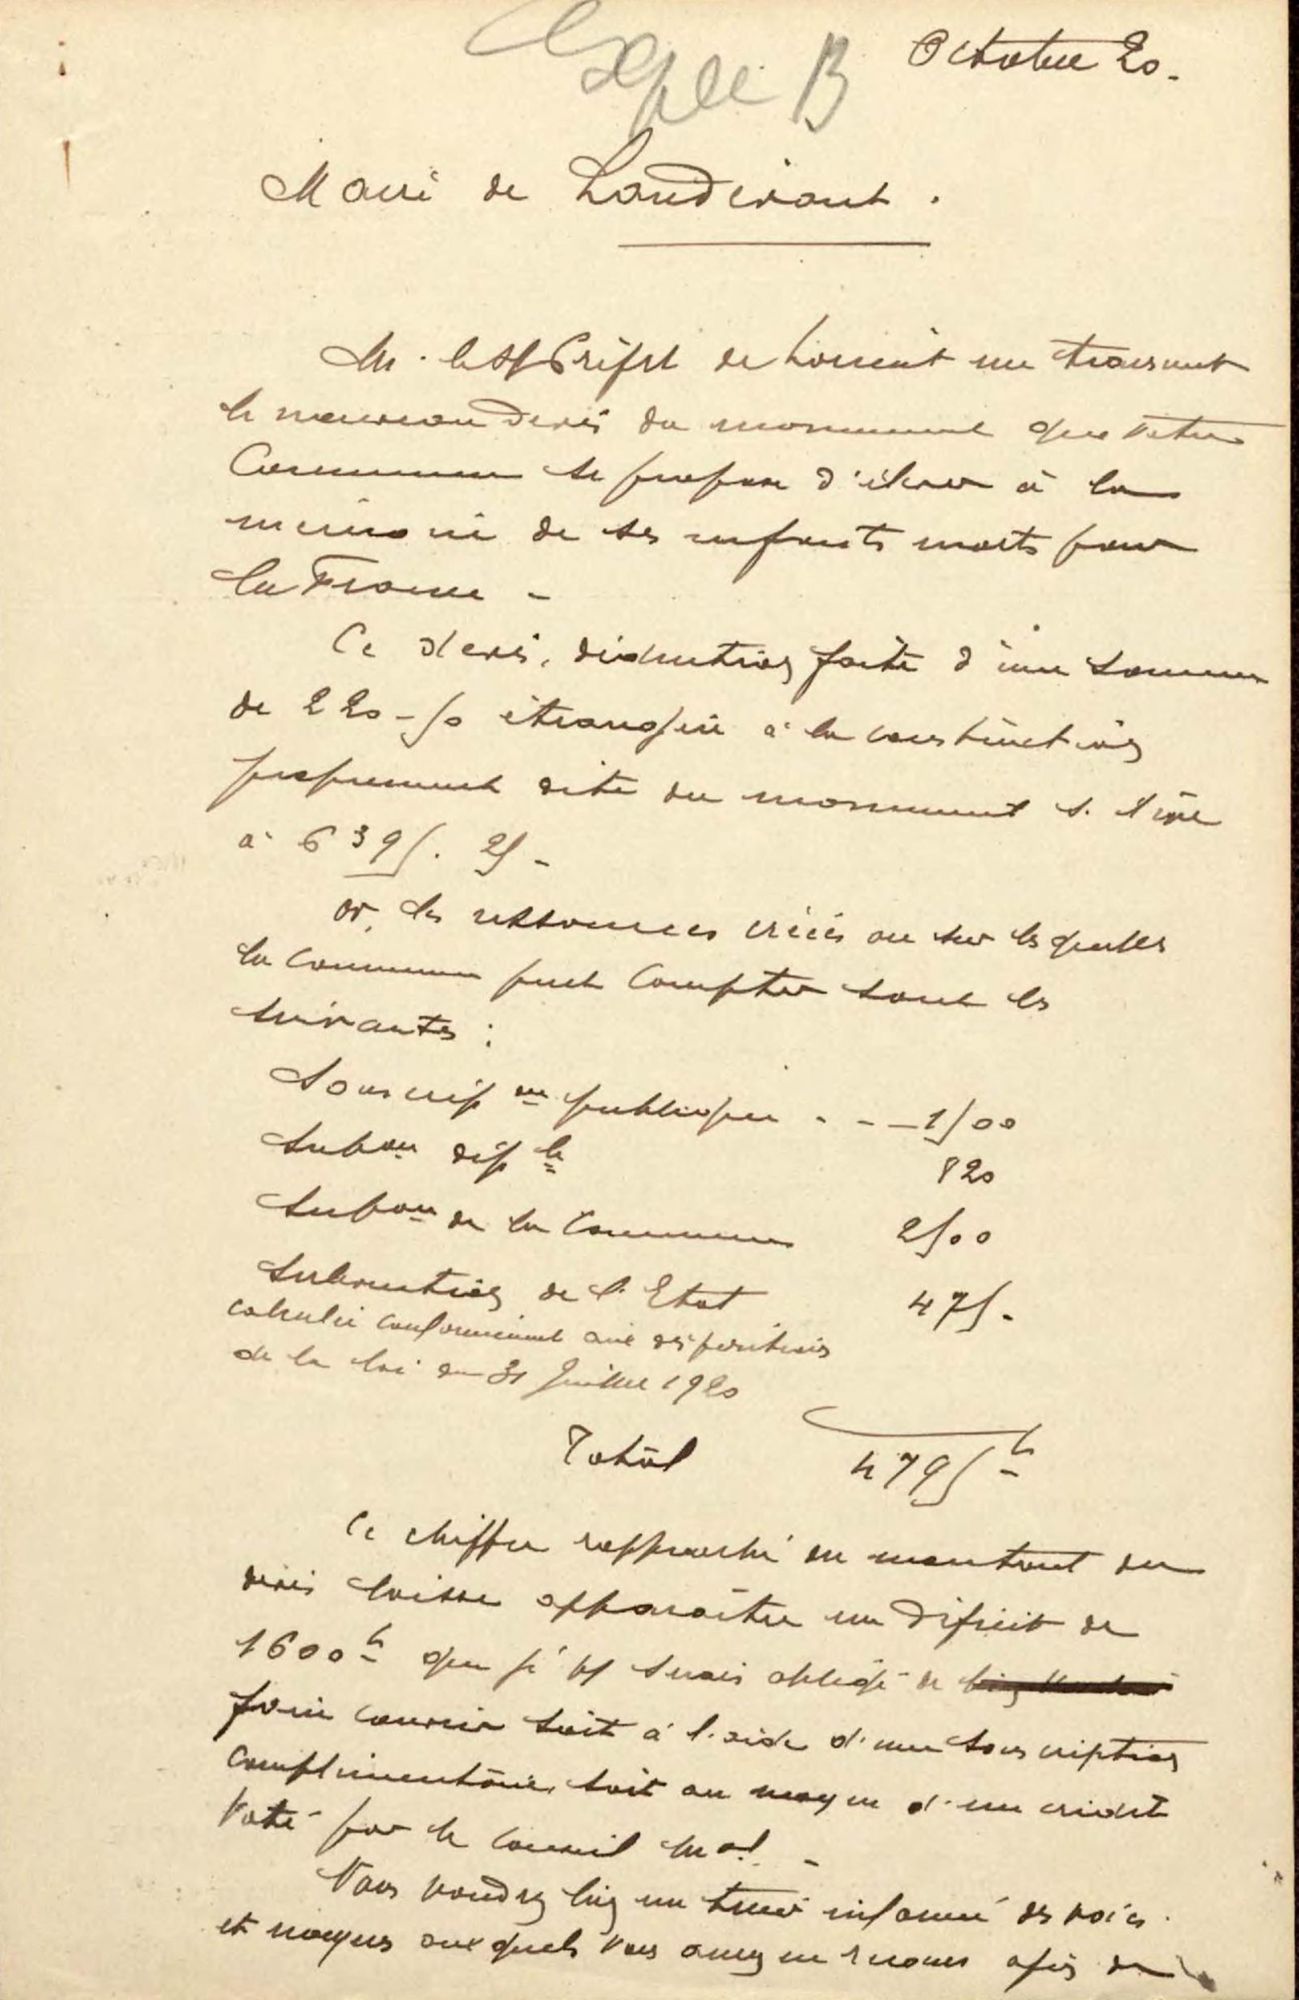 Expée B
Octobre 20.
Maire de Landévant.
M. le S/Préfet de Lorient me transmet
le nouveau devis du monument que votre
Commune se propose d'élever à la
mémoire de ses enfants morts pour
la France -
Ce devis, déduction faite d'une somme
de 220-50 étrangère à la construction
proprement dite du monument s'élève
à 6395. 25 -
Or, les ressources créées ou sur lesquelles
la Commune peut compter sont les
suivantes :
Souscripon publique . - - 1500
Subon déple 820
Subon de la Commune 2500
Subvention de l'Etat 475.
calculée conformément aux dispositions
de la loi du 31 Juillet 1920
Total 4795 f
Ce chiffre rapproché du montant du
devis laisse apparaître un déficit de
1600 f que je serais obligé de
faire couvrir soit à l'aide d'une souscription
complémentaire, soit au moyen d'un crédit
voté par le Conseil Mal. -
Vous voudrez bien me tenir informé des voies
et moyens auxquels vous aurez eu recours afin de